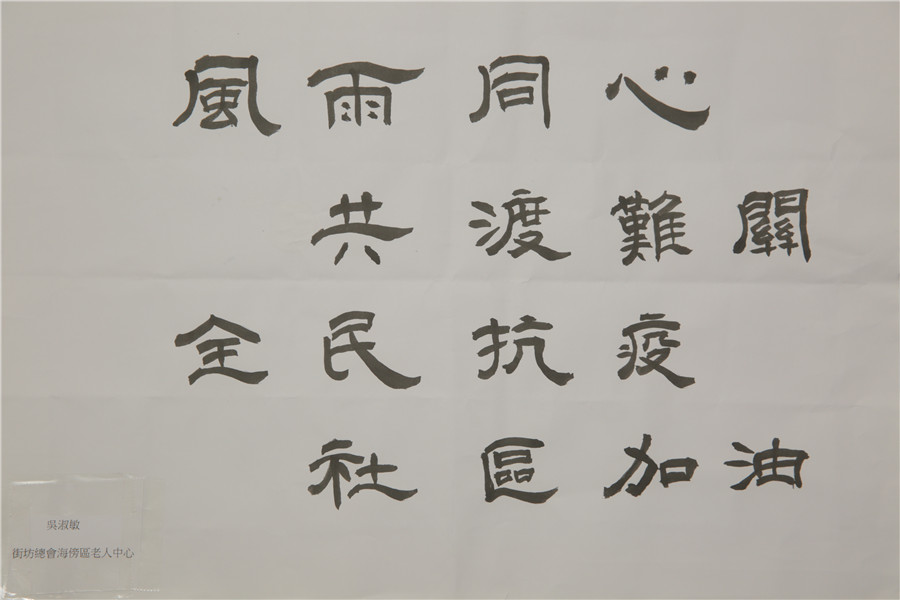 風雨同心
共渡難關
全民抗疫
社區加油
吳淑敏
街坊總會海傍區老人中心